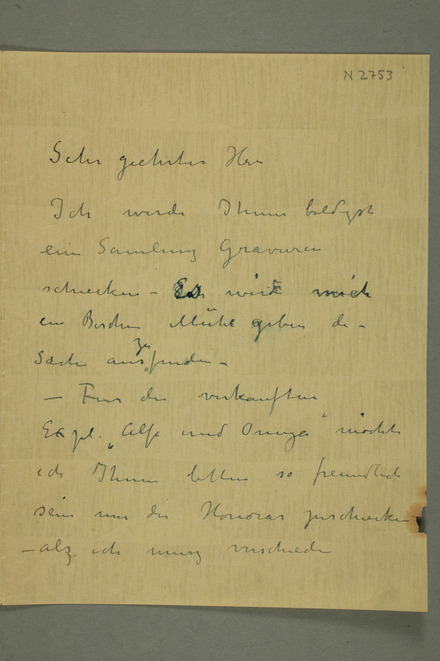 N 2753
Sehr geehrter Herr
Ich werde Ihnen baldigst
ein Samlung Gravuren
schicken – Es wird mich
ein Bischen Mühe geben die
Sache auszufinden –
– Fur die verkauften
Expl. „Alfa und Omega" möchte
ich Ihnen bitten so freundlich
sein mir das Honorar zuschicken
– ich verschiedene